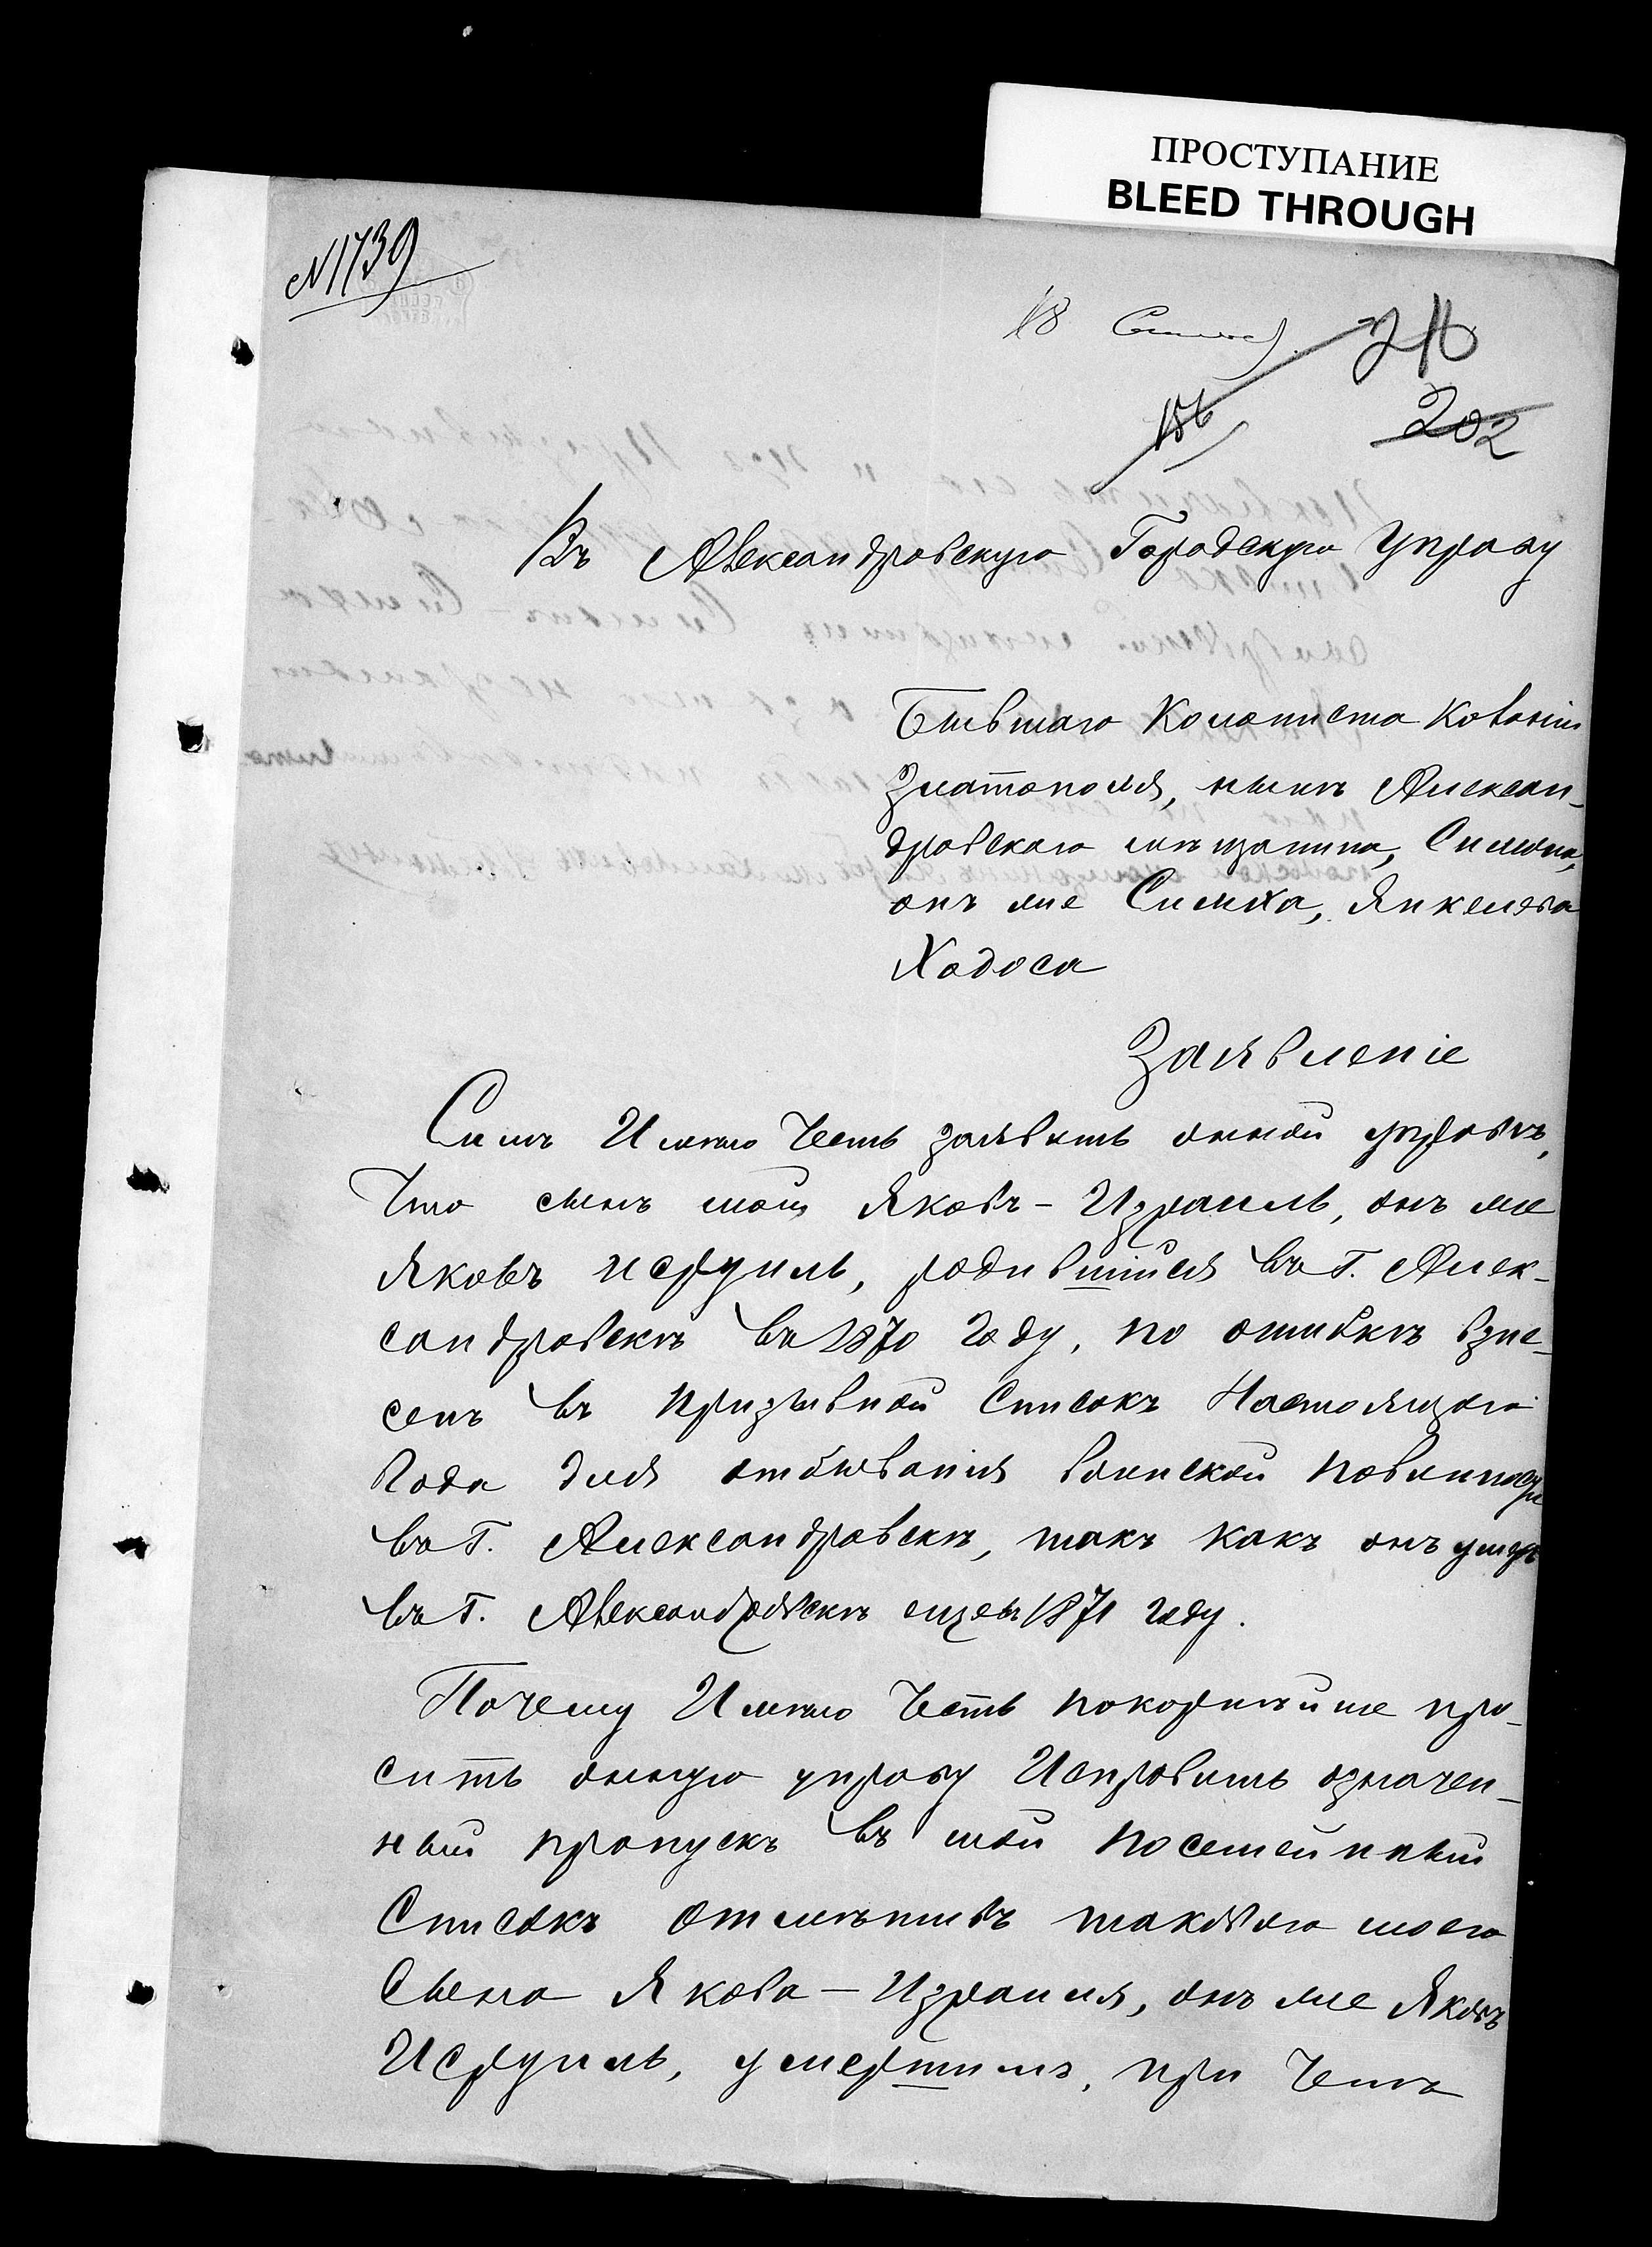 ПРОСТУПАНИЕ
BLEED THROUGH
№1739
18
156
202
Въ Александровскую Городскую Управу
Бывшаго Колониста Колоніи
Златополя, нынѣ Алексан-
дровскаго мѣщанина, Симона,
онъ же Симха, Янкелева
Ходоса
Заявленіе
Симъ Имѣю Честь заявить оной управѣ,
Что сынъ мой Яковъ-Израиль, онъ же
Яковъ Исруиль, родившійся въ Г. Алек-
сандровскѣ въ 1870 Году, по ошибкѣ взне-
сенъ въ призывной Списокъ Настоящаго
Года для отбыванія воинской повинности
въ Г. Александровскѣ, такъ какъ онъ умеръ
въ Г. Александровскѣ еще въ 1871 году.
Почему Имѣю Честь покорнѣйше про-
сить оную управу Исправить означен-
ный пропускъ въ мой посемейный
Списокъ отмѣтивъ таковаго моего
Сына Якова-Израиля, онъ же Яковъ
Исруиль, умершимъ, при Чемъ